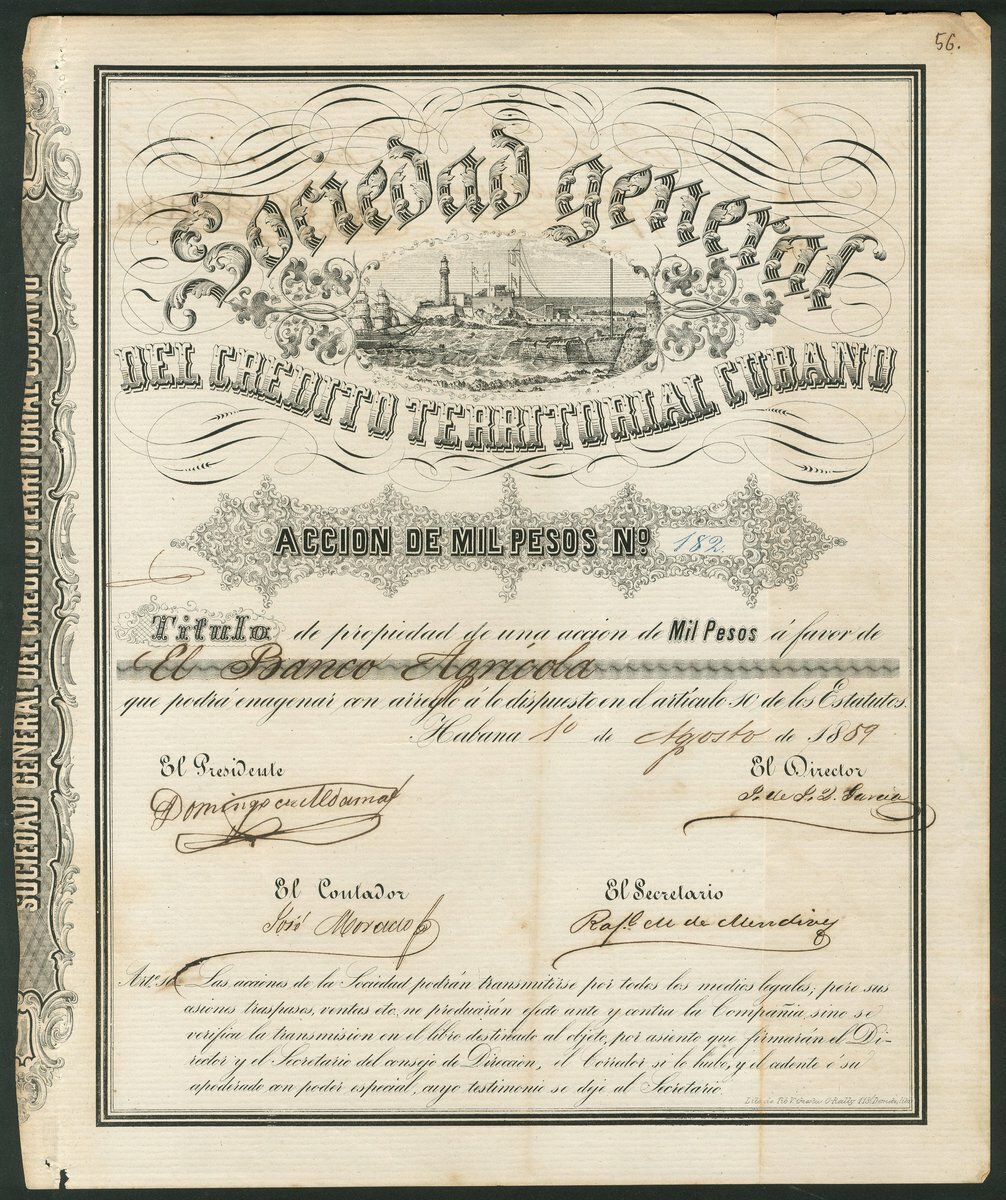 56.
Sociedad general
DEL CREDITO TERRITORIAL CUBANO
ACCION DE MIL PESOS Nº 182.
Titulo de propiedad de una accion de Mil Pesos á favor de
El Banco Agrícola
que podrá enagenar con arreglo á lo dispuesto en el artículo 10 de los Estatutos.
Habana 1º de Agosto de 1859
El Presidente
El Director
Domingo de Aldama
P. de P. D. Garcia
El Contador
El Secretario
José Morado
Raf.l M. de Mendive
Art.º 10. Las acciones de la Sociedad podrán transmitirse por todos los medios legales; pero sus
asiones traspasos, ventas etc, no producirán efecto ante y contra la Compañia, sino se
verifica la transmision en el libro destinado al objeto, por asiento que firmarán el Di-
rector y el Secretario del consejo de Direccion, el Corredor si lo hubo, y el cedente ó su
apoderado con poder especial, cuyo testimonio se dejó al Secretario.
SOCIEDAD GENERAL DEL CREDITO TERRITORIAL CUBANO